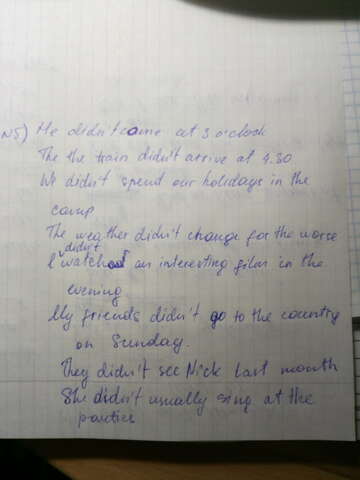 N5) He didn't came at 3 o'clock
The the train didn't arrive at 4.30
We didn't spent our holidays in the
camp
The weather didn't change for the worse
didn't
I watch an interesting film in the
evening
My friends didn't go to the country
on Sunday.
They didn't see Nick last month
She didn't usually sing at the
parties